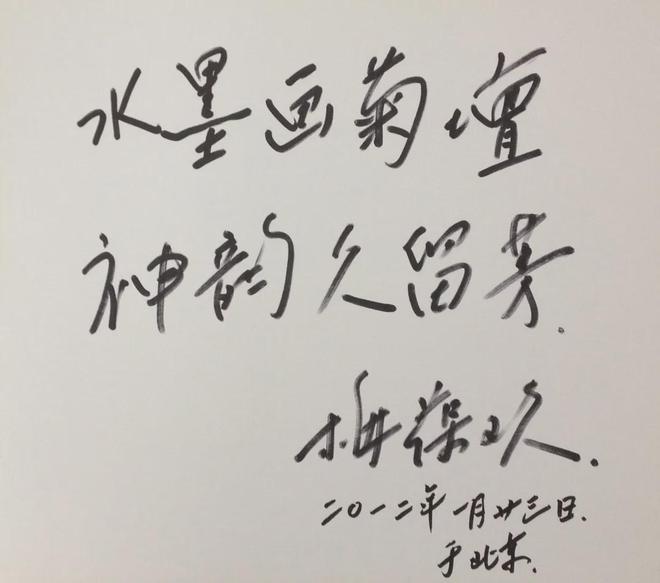 水墨画菊壇
神韵久留芳.
梅葆玖.
二〇一二年一月廿三日.
于北京.